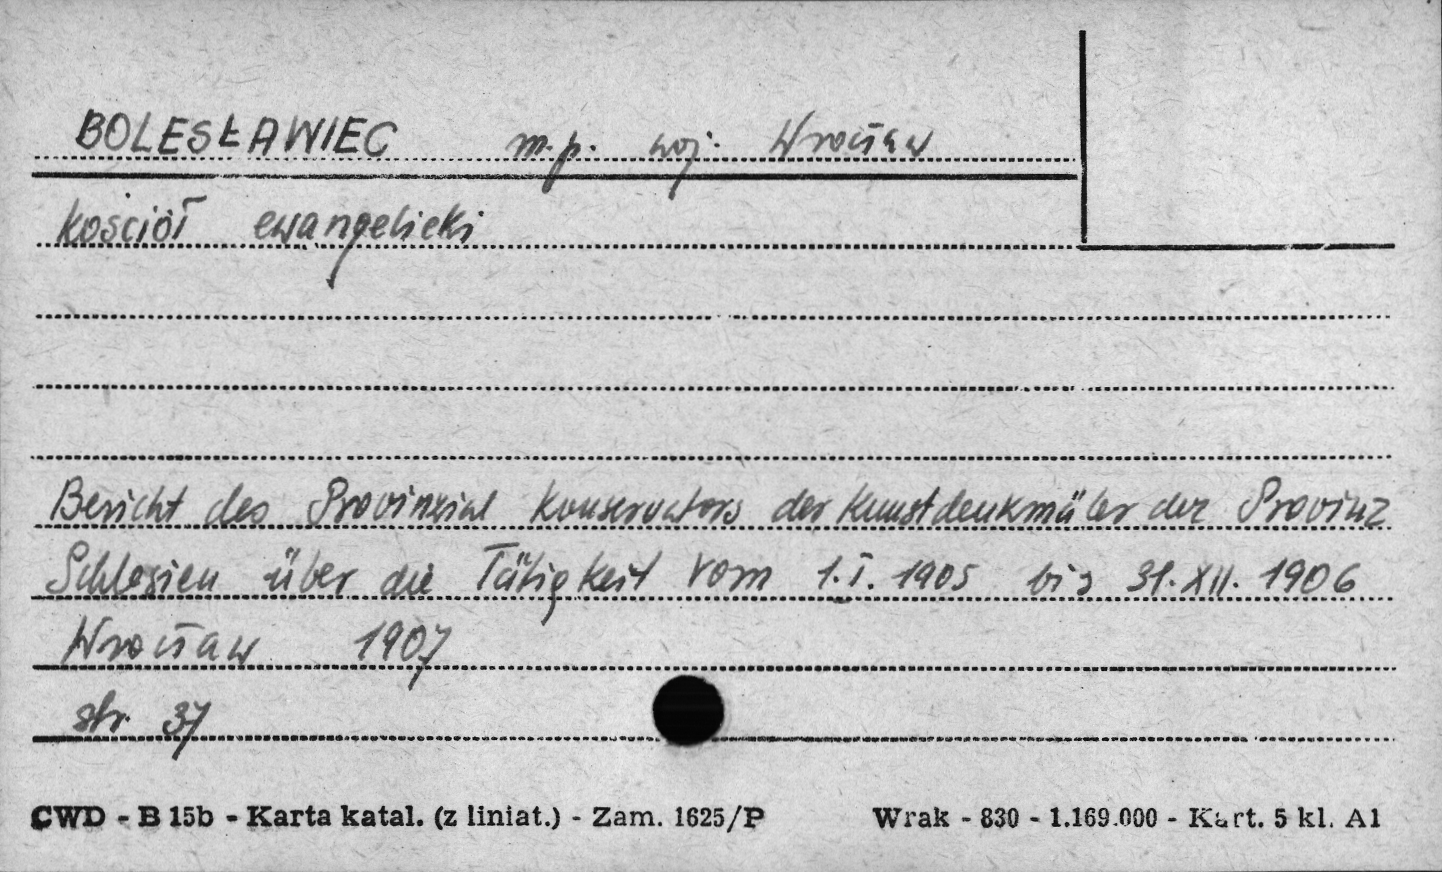 BOLESŁAWIEC m.p. woj. Wrocław
Kościół ewangelicki
Bericht des Provinzial Konservators der Kunstdenkmäler der Provinz
Schlesien über die Tätigkeit vom 1.I.1905 bis 31.XII.1906
Wrocław 1907
str. 37
CWD - B 15b - Karta katal. (z liniat.) - Zam. 1625/P Wrak - 830 - 1.169.000 - Kart. 5 kl. A1